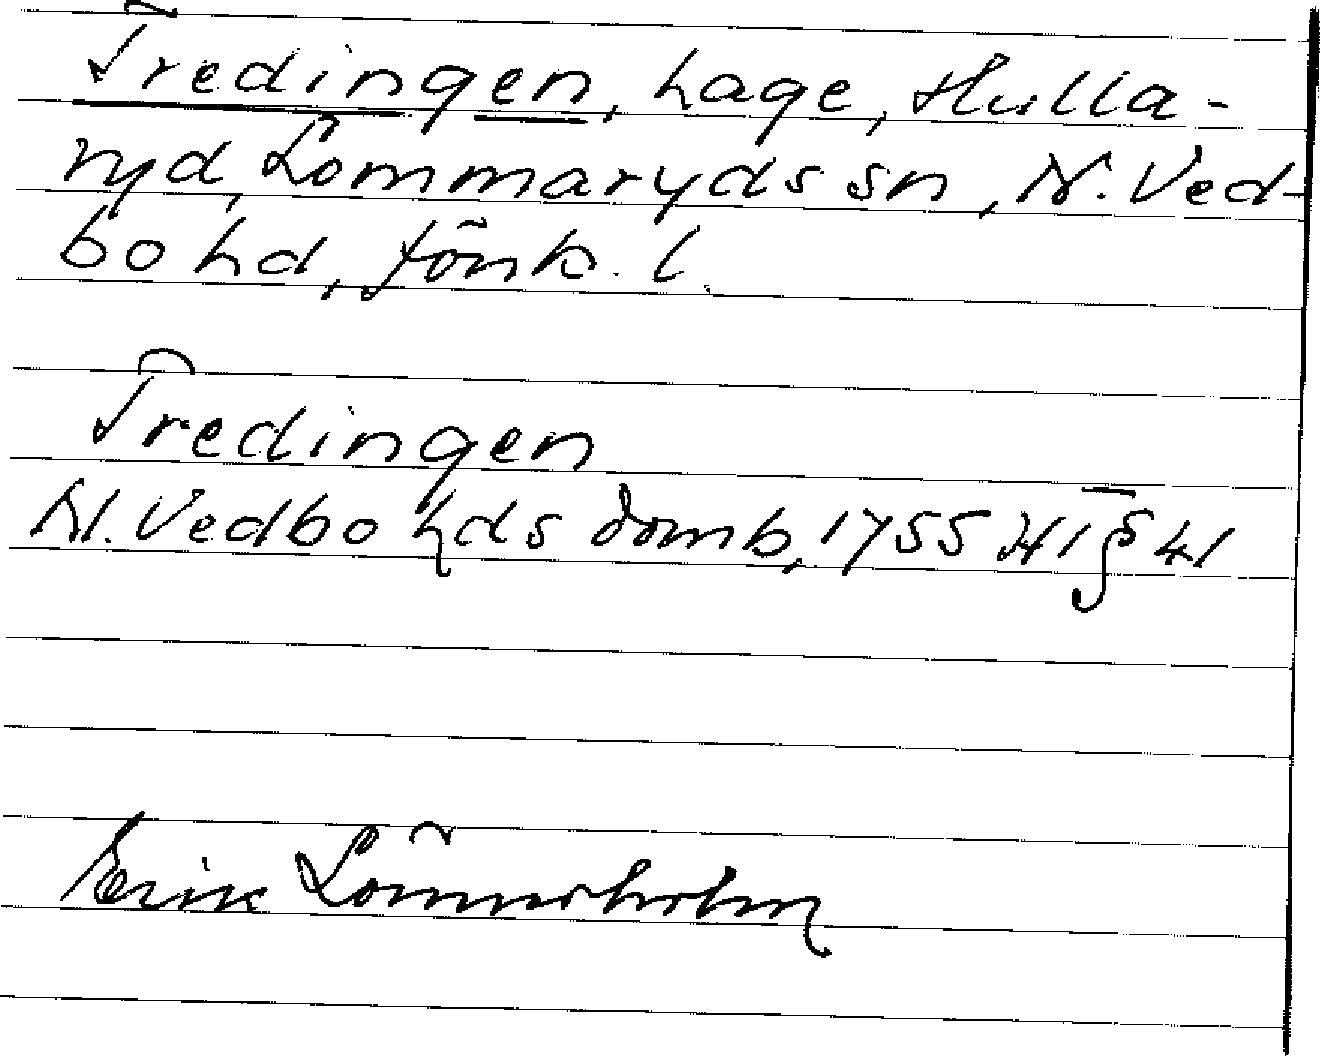 Tredingen, hage, Hulla-
ryd, Lommaryds sn, N. Ved-
bo hd, Jönk. l.
Tredingen
N. Vedbo hds domb, 1755 § 41
Erik Lönnerholm